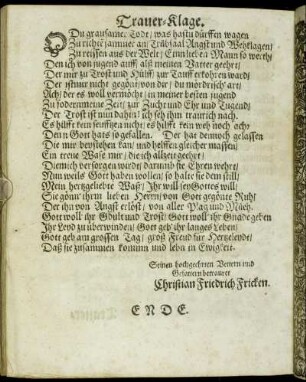 Trauer-Klage.
O Du grausamer Todt/ was hastu dürffen wagen
Zu richten jammer an/ Trübsaal/ Angst und Wehklagen/
Zu reissen auß der Welt/ Einn lieben Mann so werth/
Den ich von jugend auff/ alß meinen Vatter geehrt/
Der mir zu Trost und Hülff/ zur Tauff erkohren ward/
Der ist mir nicht gegönt/ von dir/ du mördrisch art/
Ach/ der es woll vermöcht/ in meiner besten jugend
Zu fodern meine Zeit/ zur Zucht und Ehr und Tugend/
Der Trost ist nun dahin/ ich seh ihm traurich nach.
Es hilfft kein seufftzen nicht/ es hilfft kein weh noch ach/
Denn Gott hats so gefallen. Der hat dennoch gelassen
Die mir beystehen kan/ und helffen gleicher massen/
Ein treue Wase mir/ die ich allzeit geehrt/
Die mich versorgen ward/ darumb sie Ehren wehrt/
Nun weils Gott haben wollen/ so halte sie dem still/
Mein hertzgeliebte Wase/ Ihr will sey Gottes will/
Sie gönn ihrm lieben Herrn/ von Gott gegönte Ruh/
Der ihn von Angst erlöst/ von aller Plag und Müh.
Gott woll ihr Gdult und Trost/ Gott woll ihr Gnade geben
Ihr Leyd zu überwinden/ Gott geb ihr langes Leben/
Gott geb am grossen Tag/ groß Freud für Hertzeleyd/
Daß sie zusammen kommn und lebn in Ewigkeit.
Seinen hochgeehrten Vettern und
Gefattern betrauret
Christian Friedrich Fricken.
ENDE.